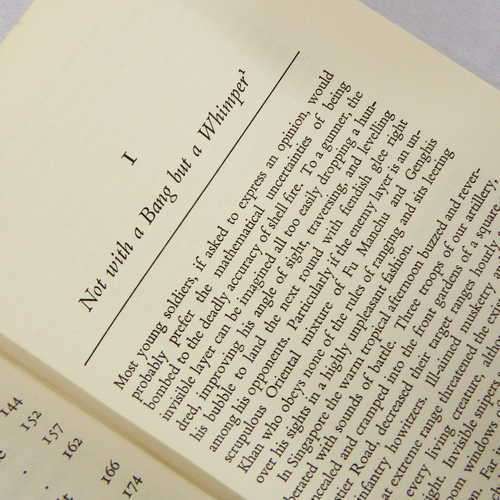 144
152
157
162
166
174
I
Not with a Bang but a Whimper¹
Most young soldiers, if asked to express an opinion, would
probably prefer the mathematical uncertainties of being
bombed to the deadly accuracy of shell fire. To a gunner, the
invisible layer can be imagined all too easily dropping a hun-
dred, improving his angle of sight, traversing, and levelling
his bubble to land the next round with fiendish glee right
among his opponents. Particularly if the enemy layer is an un-
scrupulous Oriental mixture of Fu Manchu and Genghis
Khan who obeys none of the rules of ranging and sits leering
over his sights in a highly unpleasant fashion.
In Singapore the warm tropical afternoon buzzed and rever-
berated with sounds of battle. Three troops of our artillery,
and crammed into the front gardens of a square
Road, decreased their target ranges hourly
infantry howitzers. Ill-aimed musketry
at extreme range threatened the
every living creature,
Invisible